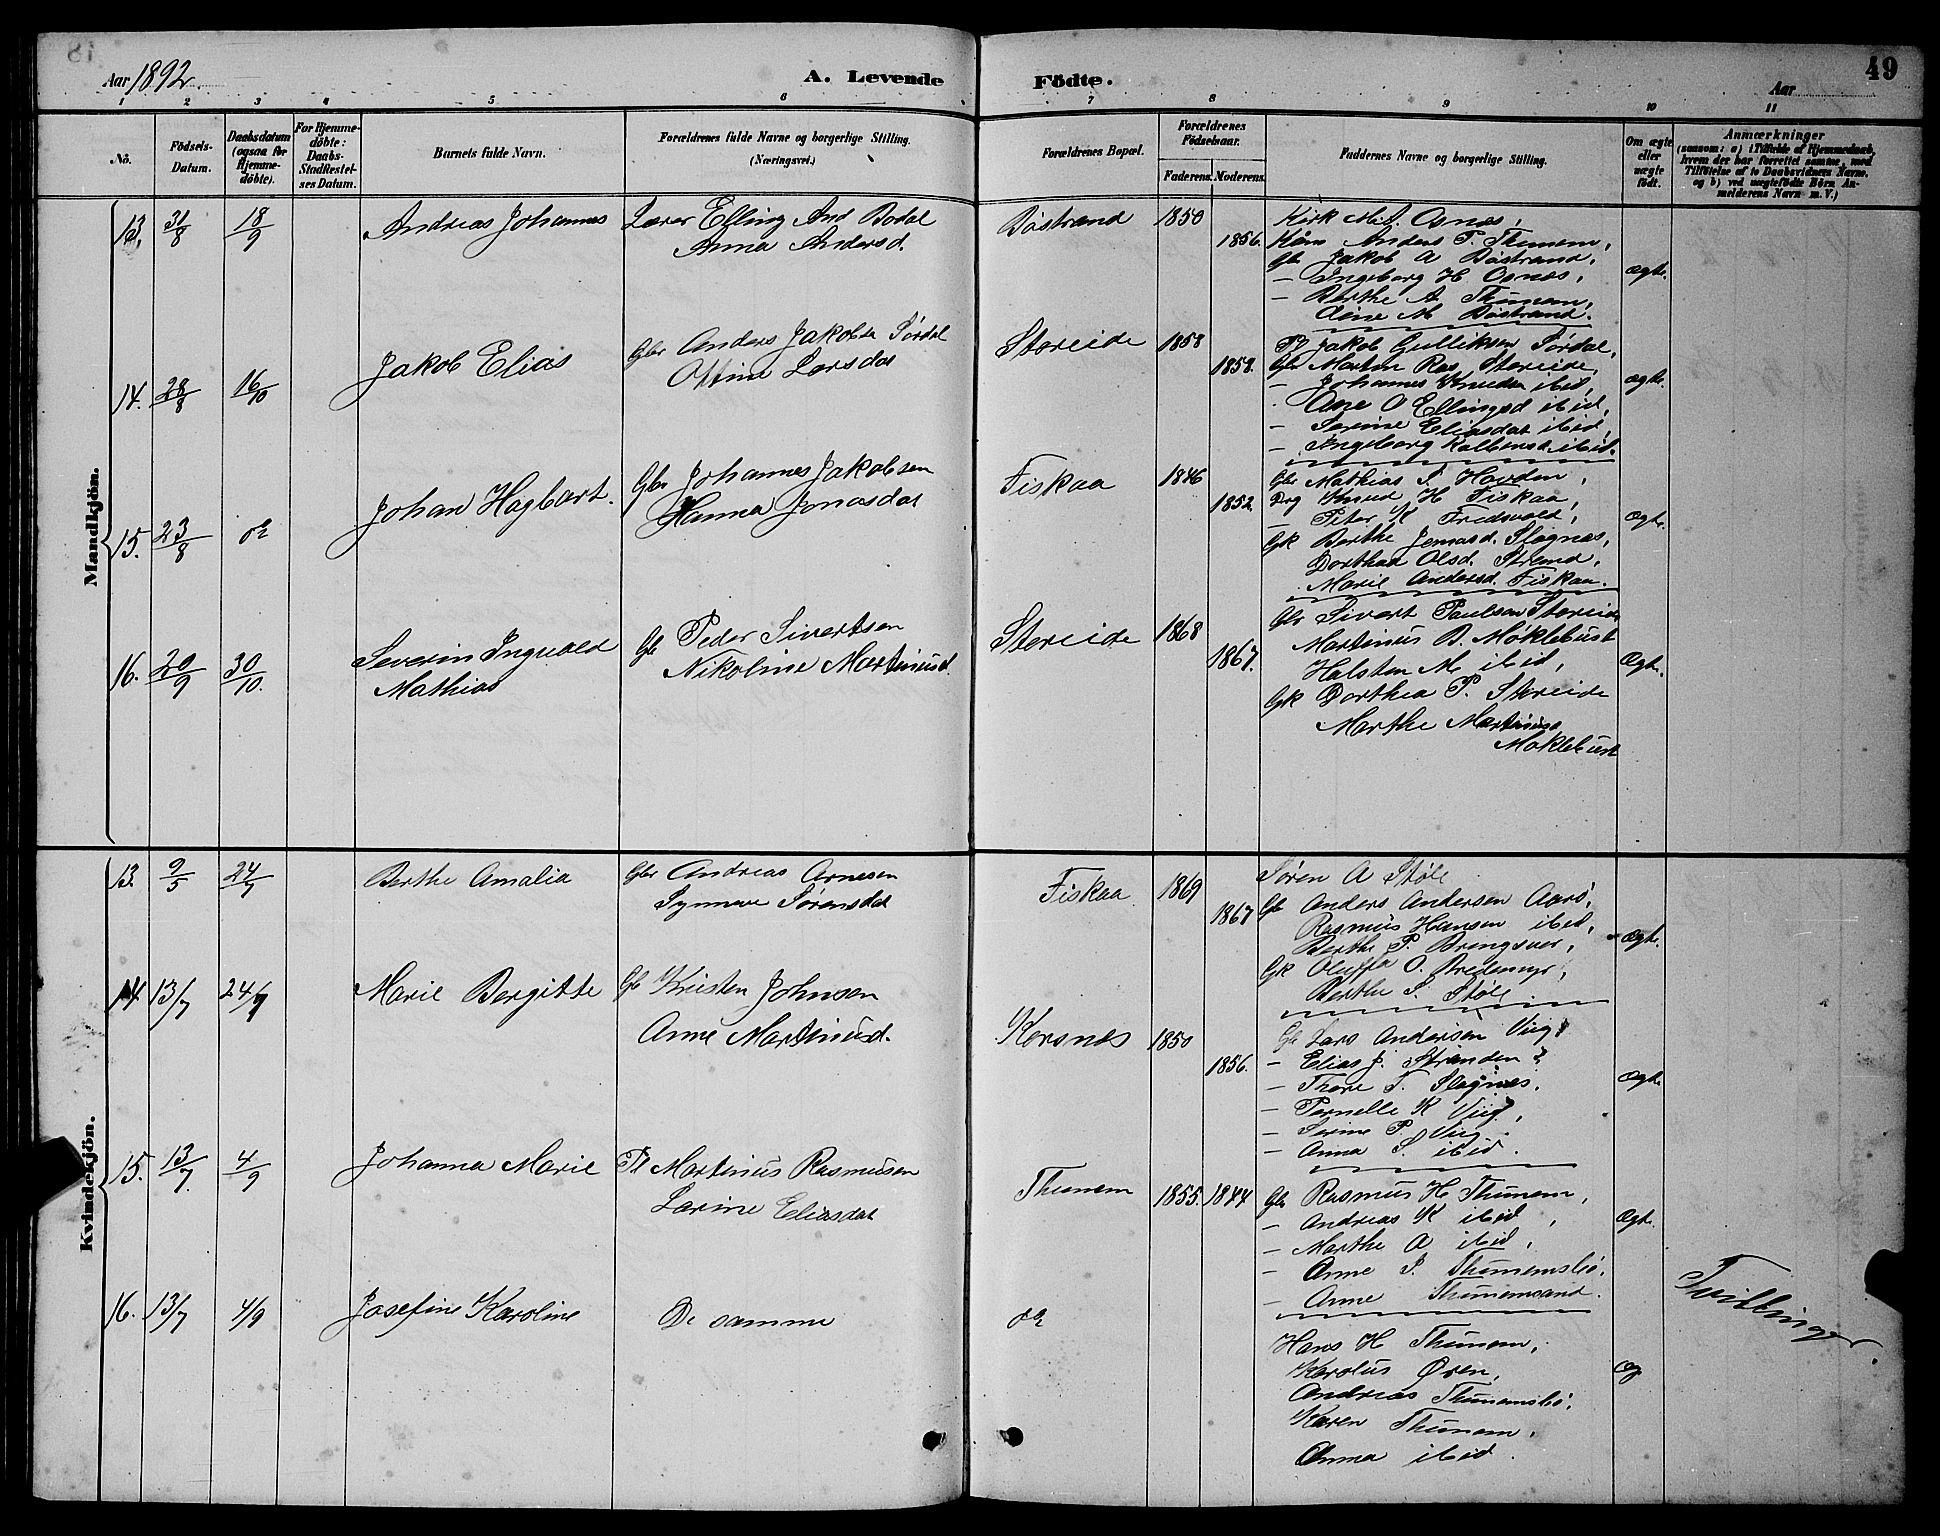 Aar 1892.
A. Levende Födte.
Aar
49
1 2 3 4 5 6 7 8 9 10 11
No.
Födsels-Datum.
Daabsdatum (ogsaa for Hjemme-döbte).
For Hjemme-döbte: Daabs-Stadfæstel-ses Datum.
Barnets fulde Navn.
Forældrenes fulde Navne og borgerlige Stilling. (Næringsvei.)
Forældrenes Bopæl.
Forældrenes Födselsaar.
Faderens. Moderens.
Faddernes Navne og borgerlige Stilling.
Om ægte eller uægte födt.
Anmærkninger
(saasom: a) i Tilfælde af Hjemmedaab, hvem der har forrettet samme, med Tilföielse af to Daabsvidners Navne, og b) ved uægtefödte Börn An-melderens Navn m. V.)
Mandkjön.
13. 31/8 18/9 Andreas Johannes
Lærer Elling And Bodal
Anna Andersd.
Böstrand 1850
1856.
Kirk M. A. Osnes,
Kårm Anders P. Thunem,
Gbr Jakob A Böstrand,
— Ingeborg H Osnes,
— Berthe A Thunem,
Oline M Böstrand.
Ægte.
14. 28/8 16/10 Jakob Elias
Gbr Anders Jakobsen Sørdal
Ottine Larsdat
Storeide 1858
1858.
Fl Jakob Gulliksen Sørdal,
Gbr Martin Ras Storeide,
— Johannes Knudsen ibid,
Ane O Ellingsd ibid,
— Serine Eliasdat ibid,
— Ingeborg Kolbensd ibid.
Ægte.
15. 23/8 do Johan Hagbart.
Gbr Johannes Jakobsen
Hanna Jonasdat
Fiskaa 1846
1852
Gbr Mathias S Hovden,
Drg Knud H Fiskaa,
— Peter K Fredsvold,
Gk Berthe Jonasd. Slagnæs,
Dorthea Olsd. Strand,
Marie Andersd. Fiskaa.
Ægte.
16. 20/9 30/10. Severin Ingvald
Mathias
Gbr Peder Sivertsen
Nikoline Martinusd.
Storeide 1868
1867.
Gbr Sivert Paulsen Storeide
Martinus B. Møklebust
Halsten M ibid,
Gk Dorthea P. Storeide
Marthe Martinusd
Moklebust
Ægte.
Kvindekjön.
13. 9/5 24/7 Berthe Amalia
Gbr Andreas Arnesen
Synneve Sørensdat
Fiskaa 1869
1867
Søren A Støle
Gbr Anders Andersen Aarø,
Rasmus Hansen ibid,
Berthe P. Brengsver,
Gk Oluffa O. Bredemyr,
Berthe S. Støle
Ægte.
14. 13/7 24/7 Marie Bergitte
Gbr Kristen Johnsen
Anne Martinusd.
Korsnes 1850
1856.
Gbr Lars Andersen Viig,
— Elias J. Stranden,
— Thore T. Slagnæs,
— Pernelle K Viig,
— Serine P Viig.
— Anna S. ibid.
Ægte.
15. 13/7. 4/9 Johanna Marie
Fl Martinus Rasmusen
Larine Eliasdat
Thunem 1855. 1844
Gbr Rasmus H Thunem,
— Andreas K ibid,
— Marthe A ibid,
— Anne S. Thunemsbø,
— Anne Thunemsand.
Ægte.
16. 13/7 4/9 Josefine Karoline
De samme
do
Hans H Thunem,
Karolus Øren,
Andreas Thunemsbø,
Karen Thunem,
Anna ibid.
Æg
Tvillinger.